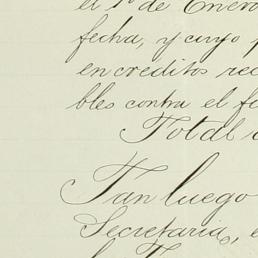 el 1º de Enero
fecha, y cuyo
en creditos rec
bles contra el fo
Total
Tan luego
Secretaria, e